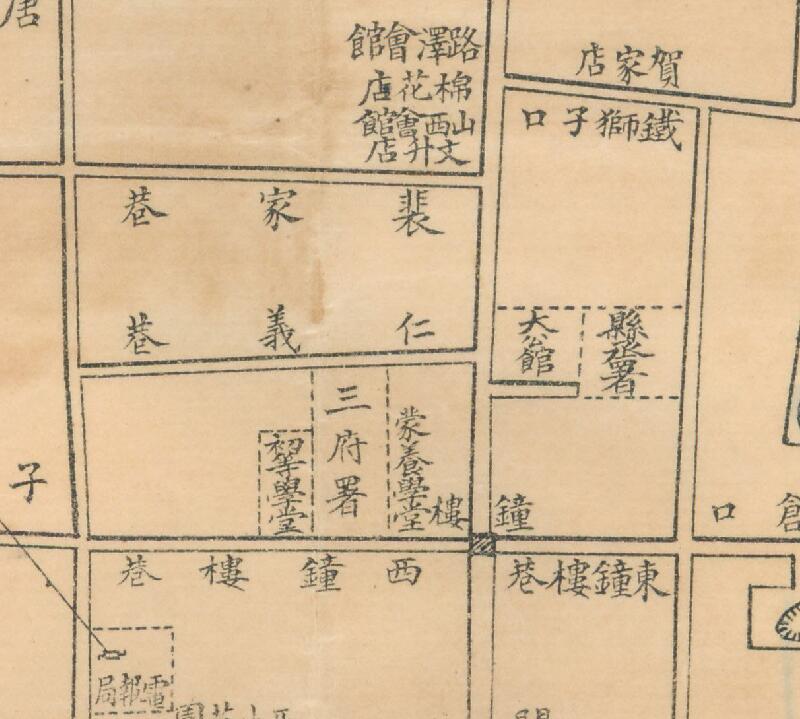 唐
路澤會館
棉花店
山西會館
文升店
賀家店
鐵獅子口
裴家巷
仁義巷
大公館
縣丞署
三府署
蒙養學堂
初等學堂
鐘樓
子
倉口
西鐘樓巷
東鐘樓巷
電報局